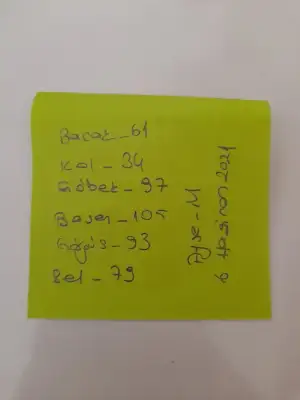 Bacak - 61
Kol - 34
Göbek - 97
Basen - 105
Göğüs - 93
Bel - 79
Ayşe - M
6 Haziran 2021